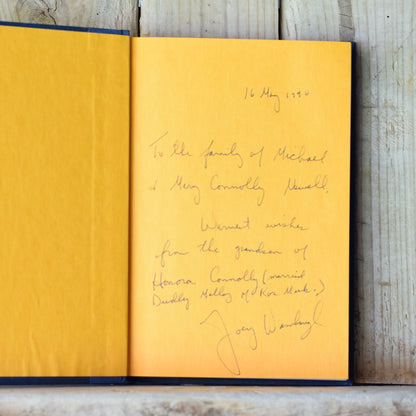 16 May 1990
To the family of Michael
& Mary Connolly Newell,
Warmest wishes
from the grandson of
Honora Connolly (married
Dudley Malloy of Ros Muck.)